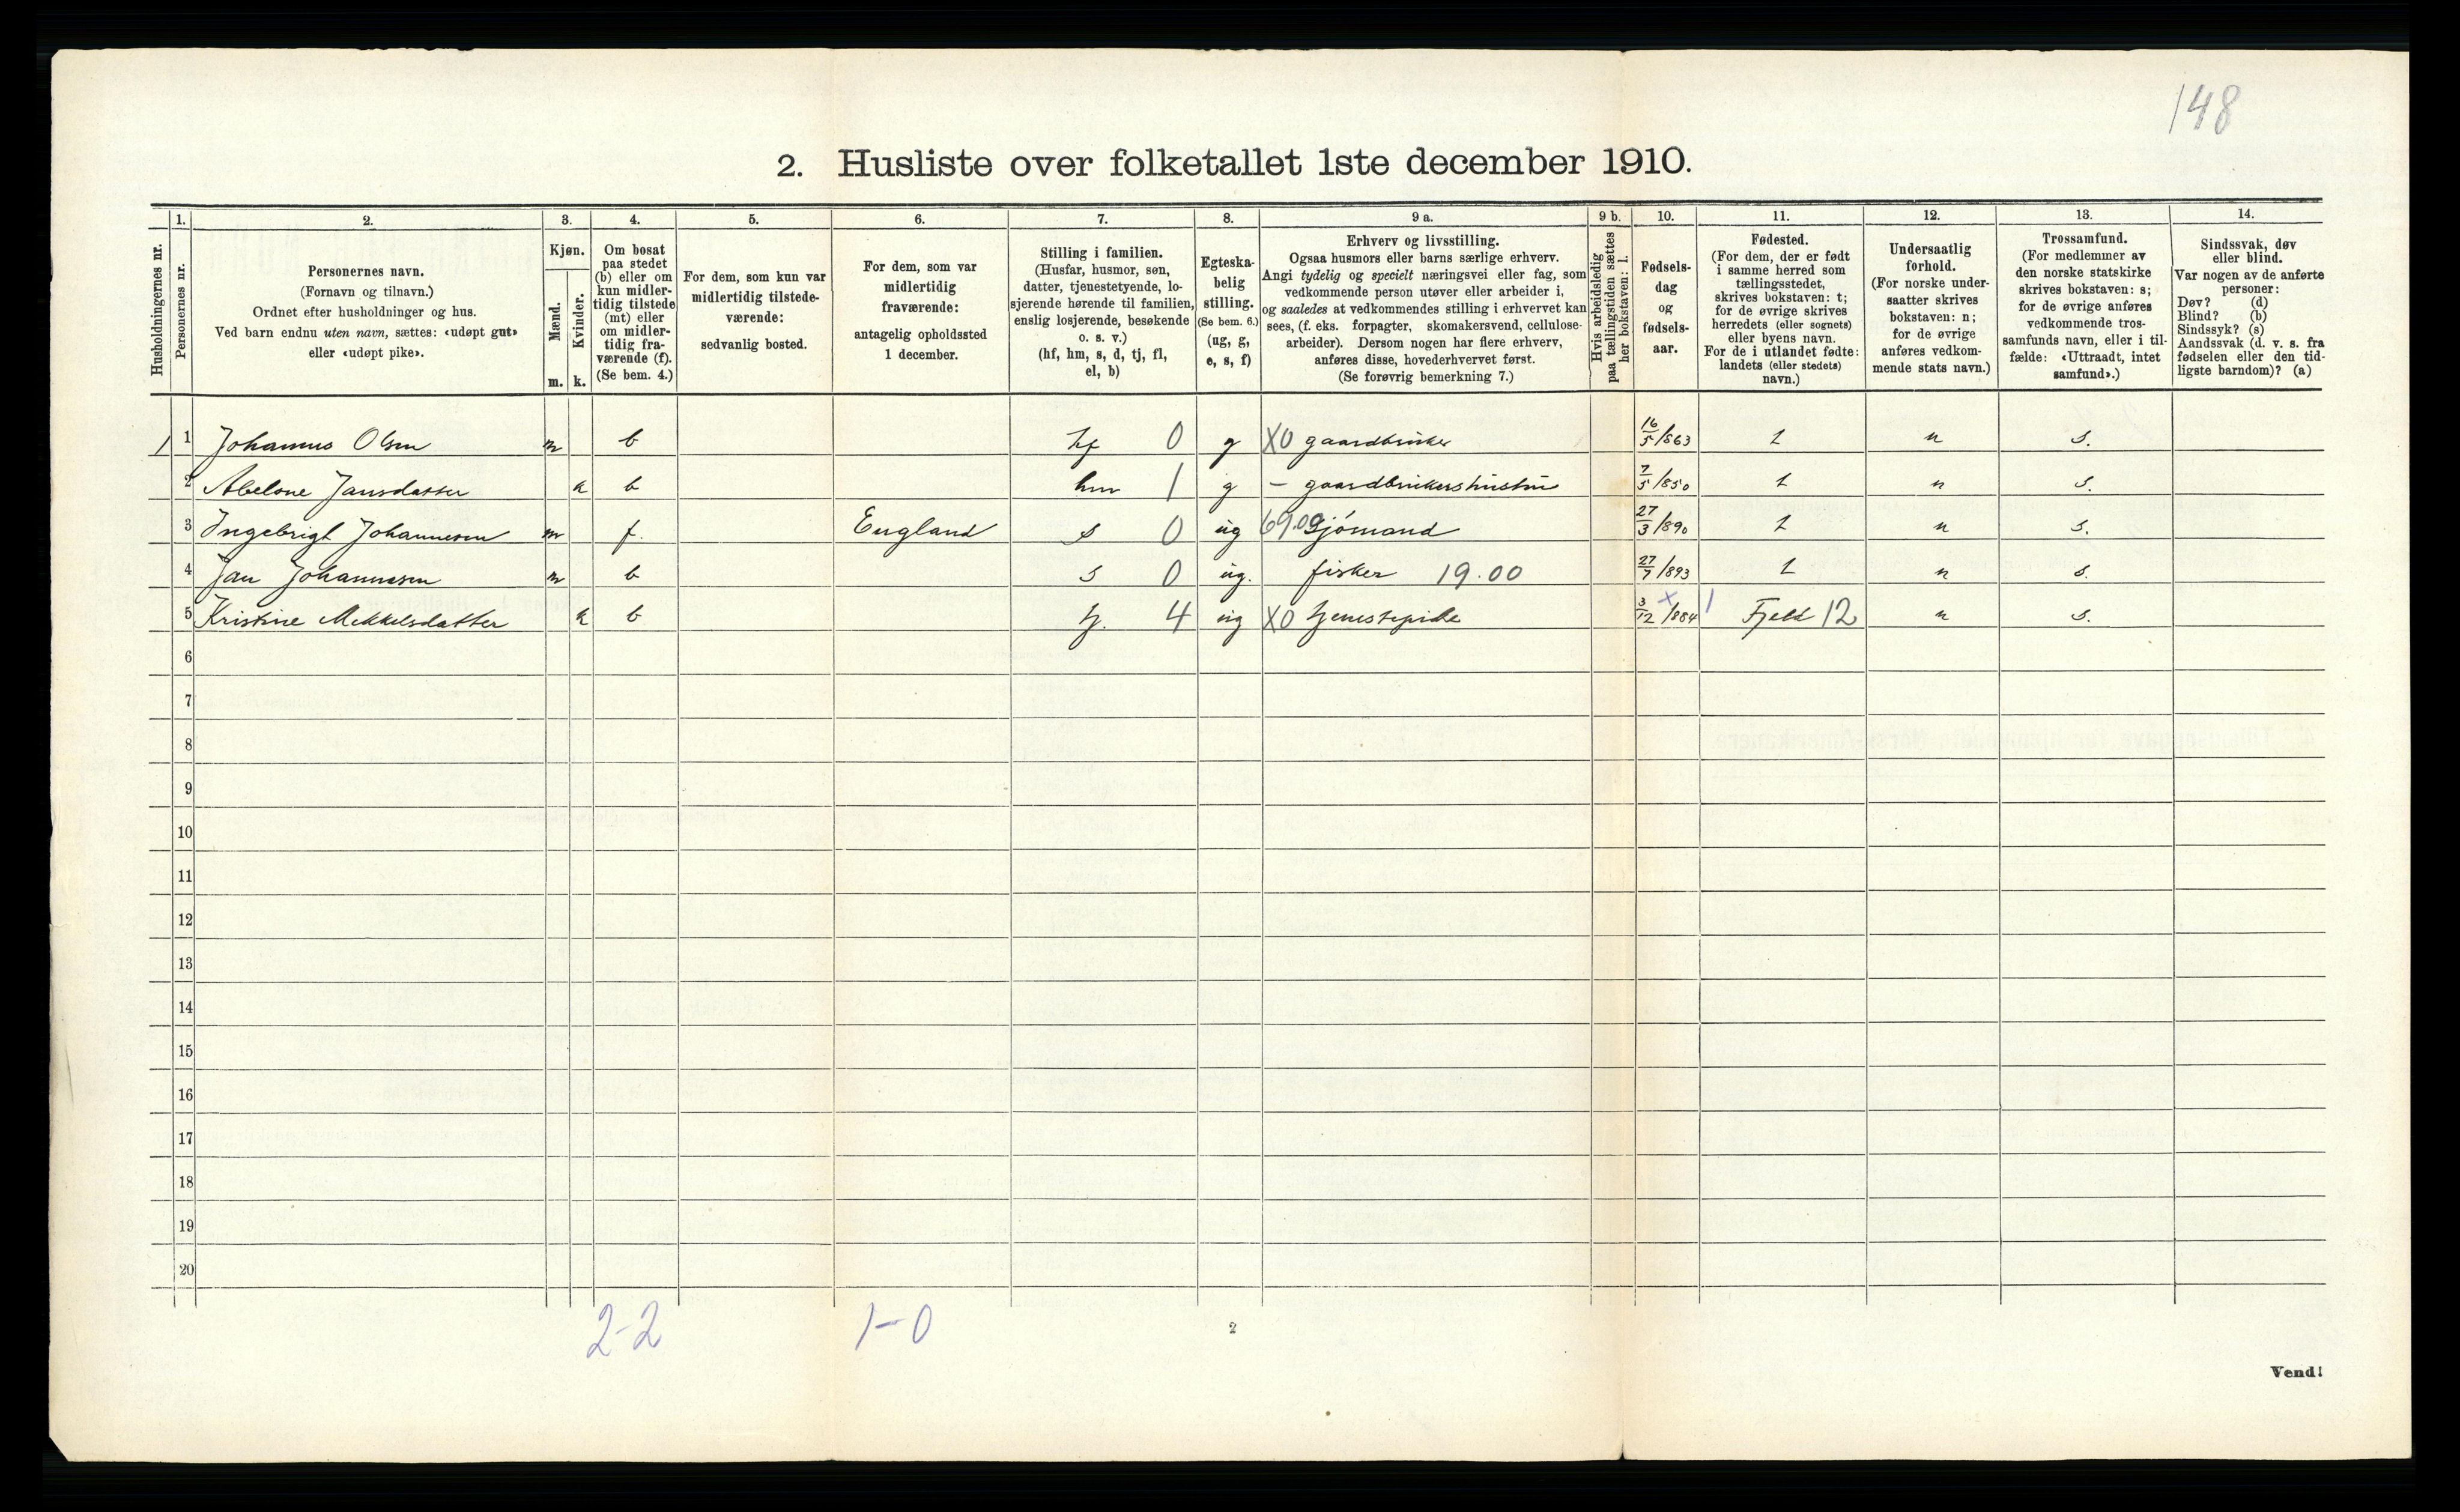 148
2. Husliste over folketallet 1ste december 1910.
Husholdningernes nr.
1.
Personernes nr.
2.
Personernes navn.
(Fornavn og tilnavn.)
Ordnet efter husholdninger og hus.
Ved barn endnu uten navn, sættes: «udøpt gut»
eller «udøpt pike».
3.
Kjøn.
Mænd.
Kvinder.
m. k.
4.
Om bosat
paa stedet
(b) eller om
kun midler-
tidig tilstede
(mt) eller
om midler-
tidig fra-
værende (f).
(Se bem. 4.)
5.
For dem, som kun var
midlertidig tilstede-
værende:
sedvanlig bosted.
6.
For dem, som var
midlertidig
fraværende:
antagelig opholdssted
1 december.
7.
Stilling i familien.
(Husfar, husmor, søn,
datter, tjenestetyende, lo-
sjerende hørende til familien,
enslig losjerende, besøkende
o. s. v.)
(hf, hm, s, d, tj, fl,
el, b)
8.
Egteska-
belig
stilling.
(Se bem. 6.)
(ug, g,
e, s, f)
9 a.
Erhverv og livsstilling.
Ogsaa husmors eller barns særlige erhverv.
Angi tydelig og specielt næringsvei eller fag, som
vedkommende person utøver eller arbeider i,
og saaledes at vedkommendes stilling i erhvervet kan
sees, (f. eks. forpagter, skomakersvend, cellulose-
arbeider). Dersom nogen har flere erhverv,
anføres disse, hovederhvervet først.
(Se forøvrig bemerkning 7.)
9 b.
Hvis arbeidsledig
paa tællingstiden sættes
her bokstaven: l.
10.
Fødsels-
dag
og
fødsels-
aar.
11.
Fødested.
(For dem, der er født
i samme herred som
tællingsstedet,
skrives bokstaven: t;
for de øvrige skrives
herredets (eller sognets)
eller byens navn.
For de i utlandet fødte:
landets (eller stedets)
navn.)
12.
Undersaatlig
forhold.
(For norske under-
saatter skrives
bokstaven: n;
for de øvrige
anføres vedkom-
mende stats navn.)
13.
Trossamfund.
(For medlemmer av
den norske statskirke
skrives bokstaven: s;
for de øvrige anføres
vedkommende tros-
samfunds navn, eller i til-
fælde: «Uttraadt, intet
samfund».)
14.
Sindssvak, døv
eller blind.
Var nogen av de anførte
personer:
Døv? (d)
Blind? (b)
Sindssyk? (s)
Aandssvak (d. v. s. fra
fødselen eller den tid-
ligste barndom)? (a)
1 1 Johannes Olsen m b hf 0 g X0 gaardbruker 16/5/863 t n s.
2 Abelone Jansdatter k b hm 1 g – gaardbrukershustru 7/5/850 t n s.
3 Ingebrigt Johannesen m f. England s 0 ug 69.00 sjómand 27/3/890 t n s.
4 Jan Johannesen m b s 0 ug. fisker 19.00 27/7/893 t n s.
5 Kristine Mekkelsdatter k b tj. 4 ug X0 tjenestepike 3/12/884 x 1 Fjeld 12 n s.
6
7
8
9
10
11
12
13
14
15
16
17
18
19
20
2-2 1-0
2
Vend!